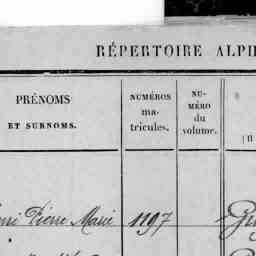 RÉPERTOIRE ALPH
PRÉNOMS
ET SURNOMS.
NUMÉROS
ma-
tricules.
NU-
MÉRO
du
volume.
Pierre Marie 1197